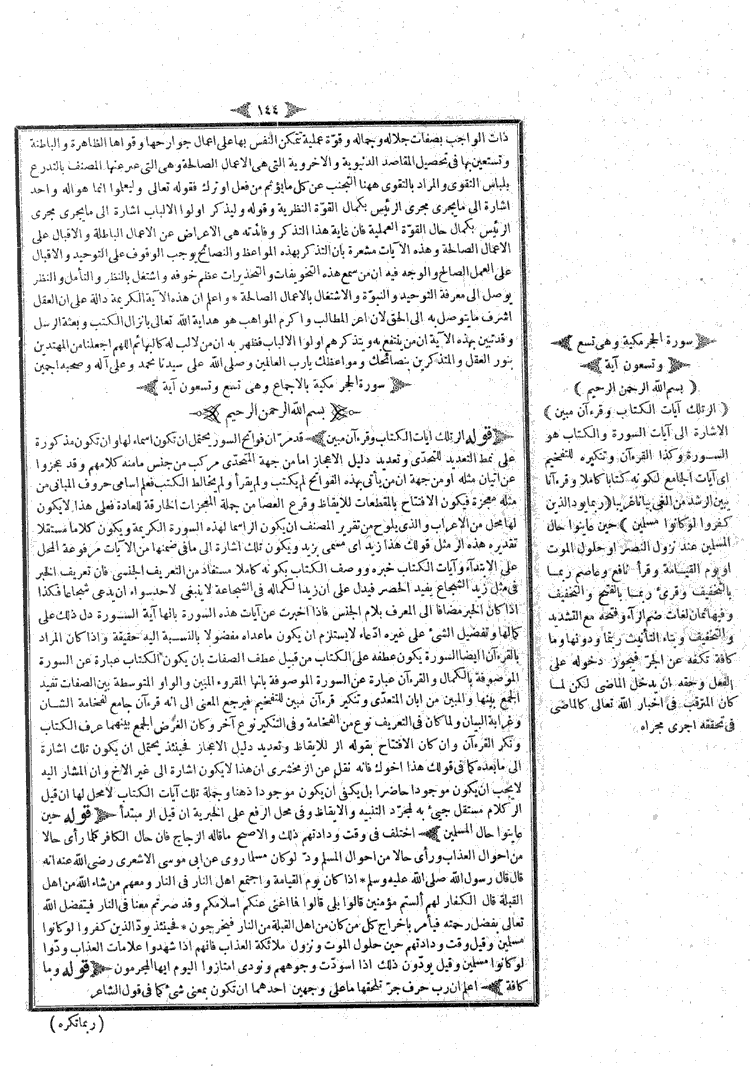 ١٤٤
ذات الواجب بصفات جلاله وجماله وقوة عملية تتمكن النفس بها على اعمال جوارحها وقواها الظاهرة والباطنة
وتستعين بها فى تحصيل المقاصد الدنيوية والاخروية التى هى الاعمال الصالحة وهى التى عبر عنها المصنف بالتدرع
بلباس التقوى والمراد بالتقوى ههنا التجنب عن كل ما يؤثم من فعل او ترك فقوله تعالى وليعلموا انما هو اله واحد
اشارة الى ما يجرى مجرى الرئيس بكمال القوة النظرية وقوله وليذكر اولوا الالباب اشارة الى ما يجرى مجرى
الرئيس بكمال حال القوة العملية فان غاية هذا التذكر وفائدته هى الاعراض عن الاعمال الباطلة والاقبال على
الاعمال الصالحة وهذه الآيات مشعرة بان التذكر بهذه المواعظ والنصائح يوجب الوقوف على التوحيد والاقبال
على العمل الصالح والوجه فيه ان من سمع هذه التخويفات والتحذيرات عظم خوفه واشتغل بالنظر والتأمل والنظر
يوصل الى معرفة التوحيد والنبوة والاشتغال بالاعمال الصالحة * واعلم ان هذه الآية الكريمة دالة على ان العقل
اشرف ما يتوصل به الى الحق لان اعز المطالب واكرم المواهب هو هداية الله تعالى بانزال الكتب وبعثة الرسل
وقد تبين بهذه الآية ان من ينتفع به ويتذكر هم اولوا الالباب فظهر به ان من لا لب له كالبهائم اللهم اجعلنا من المهتدين
بنور العقل والمتذكرين بنصائحك ومواعظك يارب العالمين وصلى الله على سيدنا محمد وعلى آله وصحبه اجمين
سورة الحجر مكية بالاجماع وهى تسع وتسعون آية
بسم الله الرحمن الرحيم
قوله الر تلك آيات الكتاب وقرءآن مبين قد مر ان فواتح السور يحتمل ان تكون اسماء لها وان تكون مذكورة
على نمط التعديد للتحدى وتعديد دليل الاعجاز اما من جهة المتحدى مركب من جنس ما منه كلامهم وقد عجزوا
عن اتيان مثله او من جهة ان من يأتى بهذه الفواتح لم يكتب ولم يقرأ ولم يخالط الكتب فعلم اسامى حروف المبانى من
مثله معجزة فيكون الافتتاح بالمقطعات للايقاظ وقرع العصا من جملة المعجزات الخارقة للعادة فعلى هذا لا يكون
لها محل من الاعراب والذى يلوح من تقرير المصنف ان يكون الر اسما لهذه السورة الكريمة ويكون كلاما مستقلا
تقديره هذه الر مثل قولك هذا زيد اى مسمى بزيد ويكون تلك اشارة الى ما فى ضمنها من الآيات مرفوعة المحل
على الابتداء وآيات الكتاب خبره ووصف الكتاب بكونه كاملا مستفاد من التعريف الجنسى فان تعريف الخبر
فى مثل زيد الشجاع يفيد الحصر فيدل على ان زيدا لكماله فى الشجاعة لا ينبغى لاحد سواه ان يدعى شجاعا فكذا
اذا كان الخبر مضافا الى المعرف بلام الجنس فاذا اخبرت عن آيات هذه السورة بانها آية السورة دل ذلك على
كمالها وتفضيل الشئ على غيره ادعاء لا يستلزم ان يكون ماعداه مفضولا بالنسبة اليه حقيقة واذا كان المراد
بالقرءآن ايضا السورة يكون عطفه على الكتاب من قبيل عطف الصفات بان يكون الكتاب عبارة عن السورة
الموصوفة بالكمال والقرءآن عبارة عن السورة الموصوفة بانها المقروء المبين والواو المتوسطة بين الصفات تفيد
الجمع بينها والمبين من ابان المتعدى وتنكير قرءآن مبين للتفخيم فيرجع المعنى الى انه قرءآن جامع لفخامة الشان
وغرابة البيان ولما كان فى التعريف نوع من الفخامة وفى التنكير نوع آخر وكان الغرض الجمع بينهما عرف الكتاب
ونكر القرءآن وان كان الافتتاح بقوله الر للايقاظ وتعديد دليل الاعجاز فحينئذ يحتمل ان يكون تلك اشارة
الى ما بعده كما فى قولك هذا اخوك فانه نقل عن الزمخشرى ان هذا لا يكون اشارة الى غير الاخ وان المشار اليه
لا يجب ان يكون موجودا حاضرا بل يكفى ان يكون موجودا ذهنا وجملة تلك آيات الكتاب لا محل لها ان قيل
الر كلام مستقل جيئ به لمجرد التنبيه والايقاظ وفى محل الرفع على الخبرية ان قيل الر مبتدأ قوله حين
عاينوا حال المسلمين اختلف فى وقت ودادتهم ذلك والاصح ما قاله الزجاج فان حال الكافر كلما رأى حالا
من احوال العذاب ورأى حالا من احوال المسلم ود لو كان مسلما روى عن ابى موسى الاشعرى رضى الله عنه انه
قال قال رسول الله صلى الله عليه وسلم * اذا كان يوم القيامة واجتمع اهل النار فى النار ومعهم من شاء الله من اهل
القبلة قال الكفار لهم ألستم مؤمنين قالوا بلى قالوا فما اغنى عنكم اسلامكم وقد صرتم معنا فى النار فيتفضل الله
تعالى بفضل رحمته فيأمر باخراج كل من كان من اهل القبلة من النار فيخرجون * فحينئذ يود الذين كفروا لو كانوا
مسلمين وقيل وقت ودادتهم حين حلول الموت ونزول ملائكة العذاب فانهم اذا شهدوا علامات العذاب ودوا
لو كانوا مسلمين وقيل يودون ذلك اذا اسودت وجوههم ونودى امتازوا اليوم ايها المجرمون قوله وما
كافة اعلم ان رب حرف جر تلحقها ما على وجهين احدهما ان تكون بمعنى شئ كما فى قول الشاعر
(ربما تكره)
سورة الحجر مكية وهى تسع
وتسعون آية
(بسم الله الرحمن الرحيم)
(الر تلك آيات الكتاب وقرءآن مبين)
الاشارة الى آيات السورة والكتاب هو
السورة وكذا القرءآن وتنكيره للتفخيم
اى آيات الجامع لكونه كتابا كاملا وقرءآنا
يبين الرشد من الغى بيانا غريبا (ربما يود الذين
كفروا لو كانوا مسلمين) حين عاينوا حال
المسلمين عند نزول النصر او حلول الموت
او يوم القيامة وقرأ نافع وعاصم ربما
بالتخفيف وقرئ ربما بالفتح والتخفيف
وفيها ثمان لغات ضم الراء وفتحه مع التشديد
والتخفيف وبتاء التأنيث ربتما ودونها وما
كافة تكفه عن الجر فيجوز دخوله على
الفعل وحقه ان يدخل الماضى لكن لما
كان المترقب فى اخبار الله تعالى كالماضى
فى تحققه اجرى مجراه